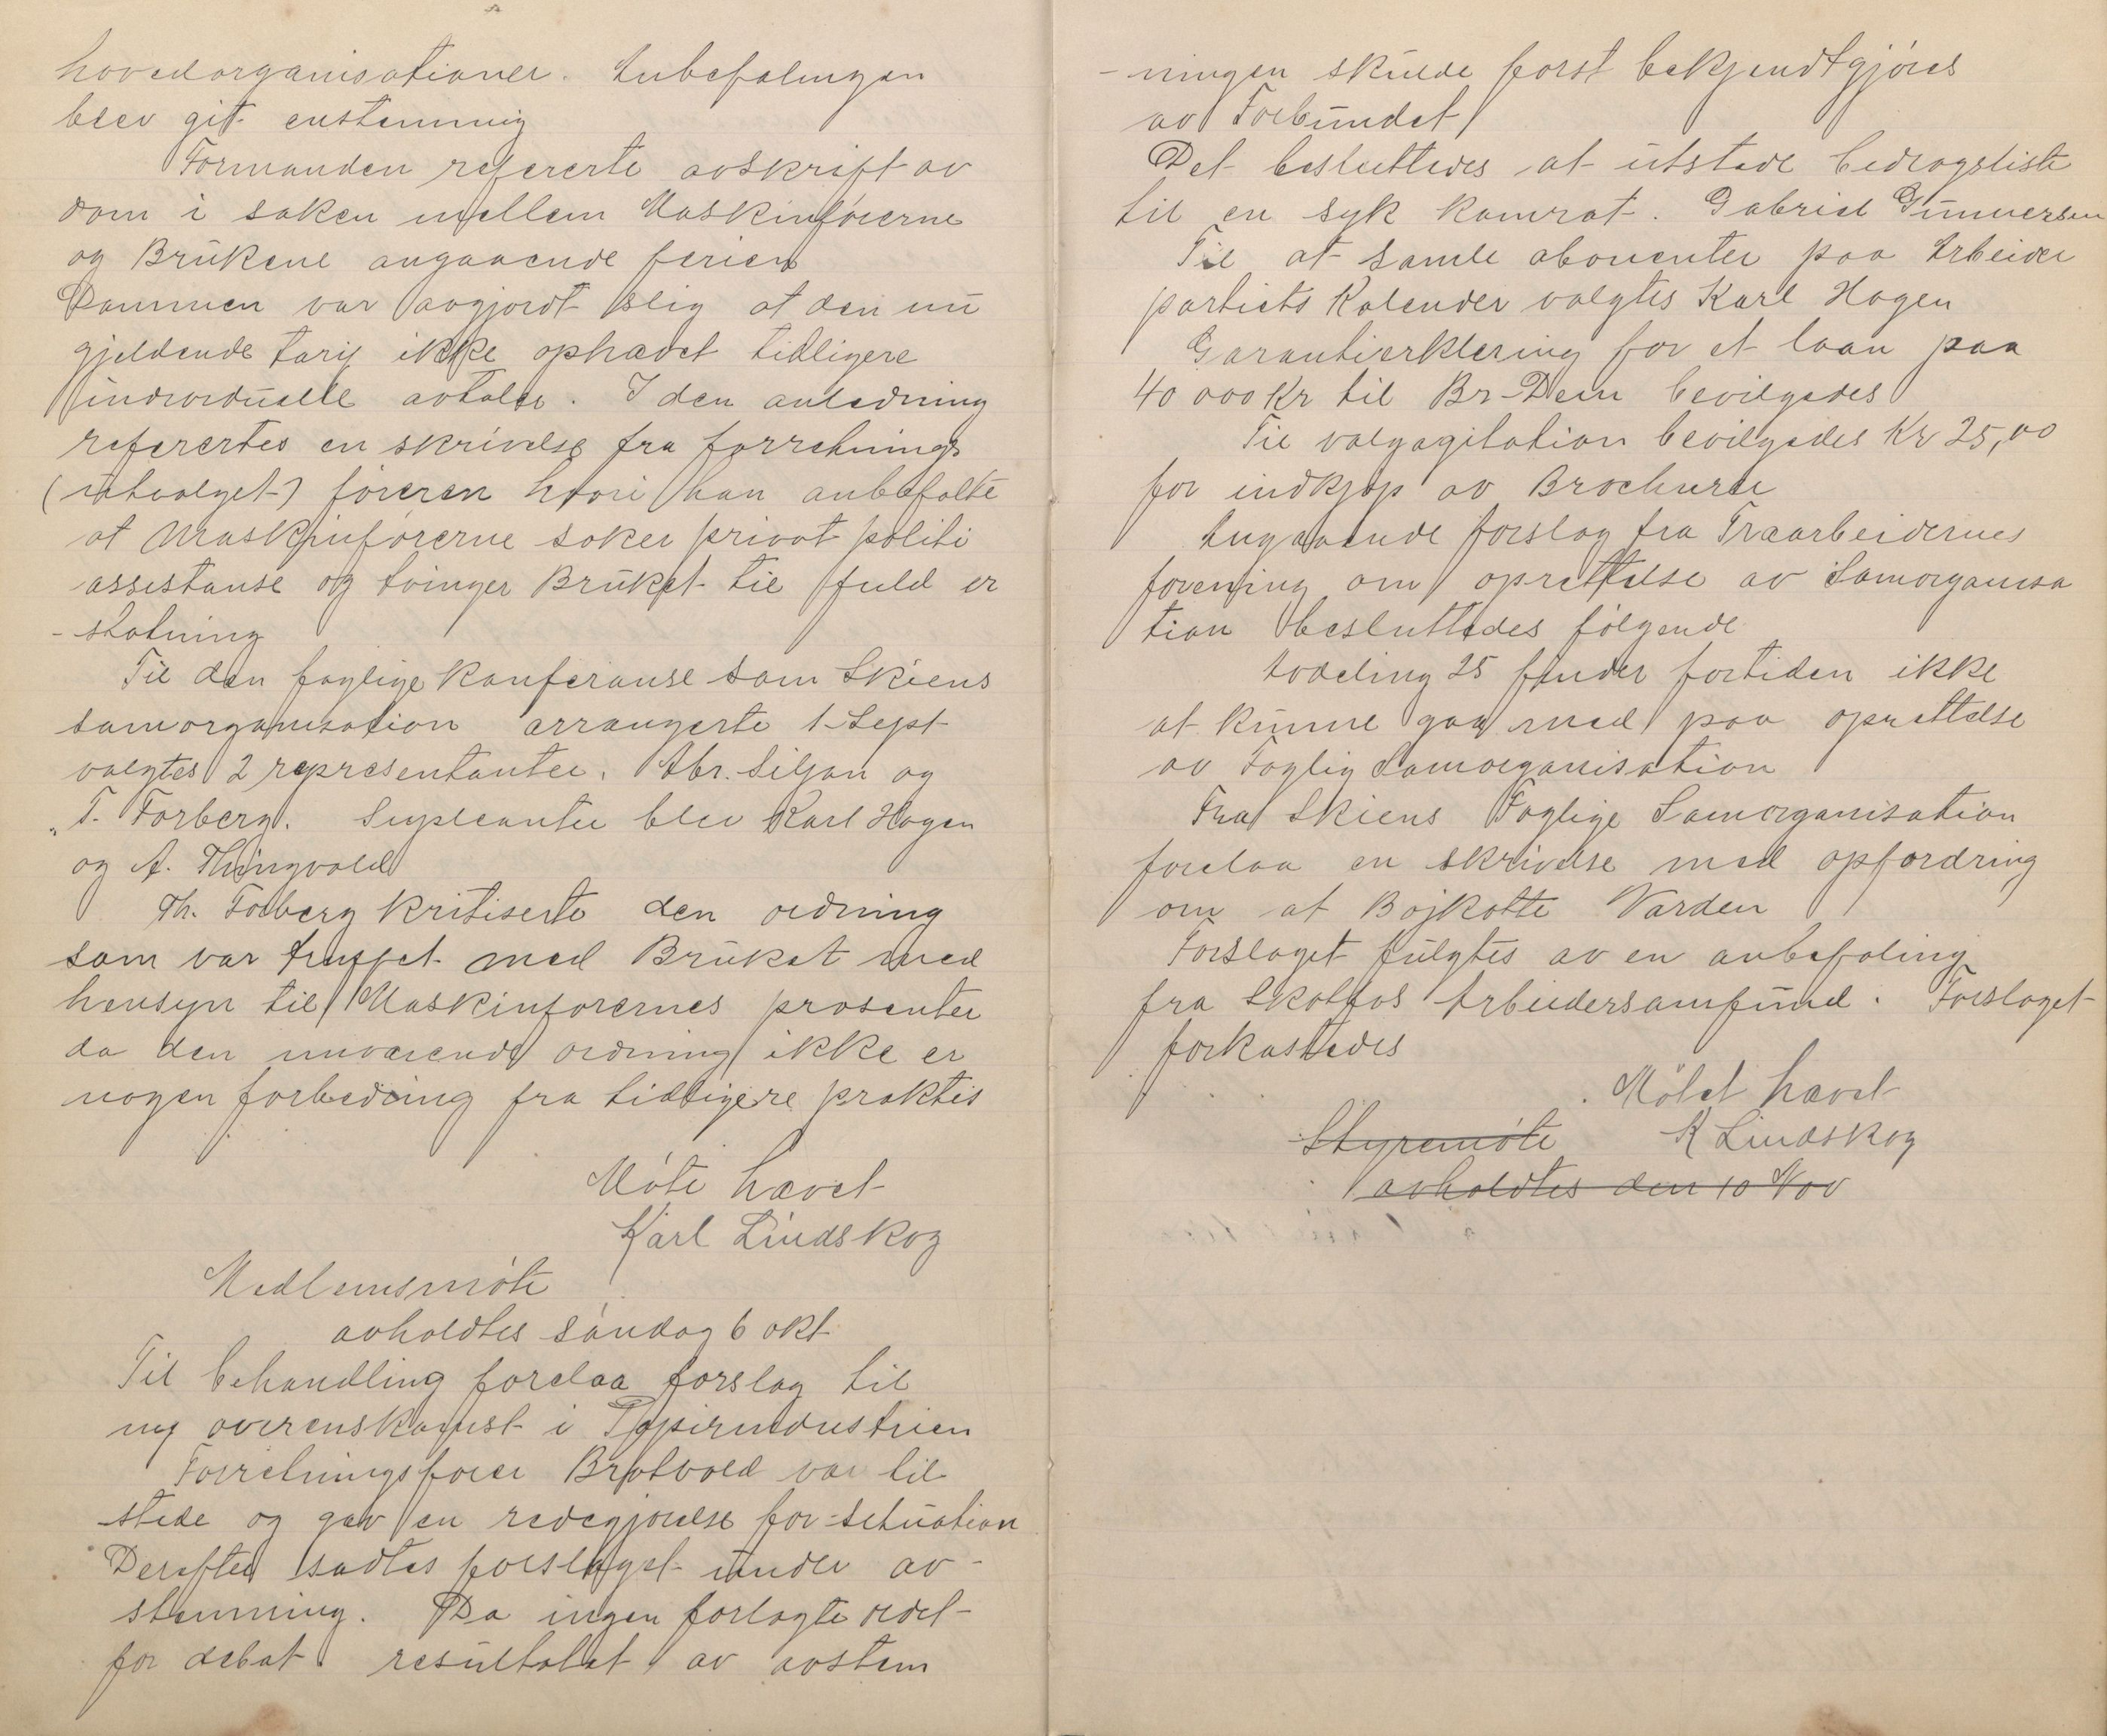 hovedorganisationer. Anbefalingen
blev git enstemmig
Formanden refererte avskrift av
dom i saken mellem Maskinførerne
og Brukene angaaende ferien
Dommen var avgjordt slig at den nu
gjeldende tarif ikke ophævet tidligere
individuelle avtaler. I den anledning
referertes en skrivelse fra forretnings
(utvalget) føreren hvori han anbefalte
at Maskinførerne søker privat politi
assistanse og tvinger Bruket til fuld er
-statning
Til den faglige Konferanse som Skiens
samorganisation arrangerte 1-Sept
valgtes 2 representanter. Abr. Siljan og
T. Forberg. Supleanter blev Karl Hagen
og A. Thingvold
Th. Forberg kritiserte den ordning
som var truffet med Bruket med
hensyn til Maskinførernes prosenter
da den nuværende ordning ikke er
nogen forbedring fra tidligere praktis
Møte hævet
Karl Lindskog
Medlemsmøte
avholdtes søndag 6 okt
Til behandling forelaa forslag til
ny overenskomst i Papirindustrien
Forretningsfører Bratvold var til
stede og gav en redegjørelse for situation
Derefter sadtes forslaget under av-
stemning. Da ingen forlagte ordet
for debat. resultatet av avstem
-ningen skulde først bekjendtgjøres
av Forbundet
Det besluttedes at utstede bidragsliste
til en syk kamrat. Gabriel Gunnersen
Til at samle abonenter paa Arbeider
partiets Kalender valgtes Karl Hagen
Garantierklering for et laan paa
40 000 Kr til Br-Dem bevilgedes
Til valgagitation bevilgedes Kr 25,00
for indkjøp av Brochurer
Angaaende forslag fra Træarbeidernes
forening om oprettelse av Samorganisa
tion besluttedes følgende
Avdeling 25 finder fortiden ikke
at kunne gaa med paa oprettelse
av Faglig Samorganisation
Fra Skiens Faglige Samorganisation
forelaa en skrivelse med opfordring
om at Bojkotte Varden
Forslaget fulgtes av en anbefaling
fra Skotfos Arbeidersamfund. Forslaget
forkastedes
Møtet hævet
Styremøte K Lindskog
avholdtes den 10 Nov